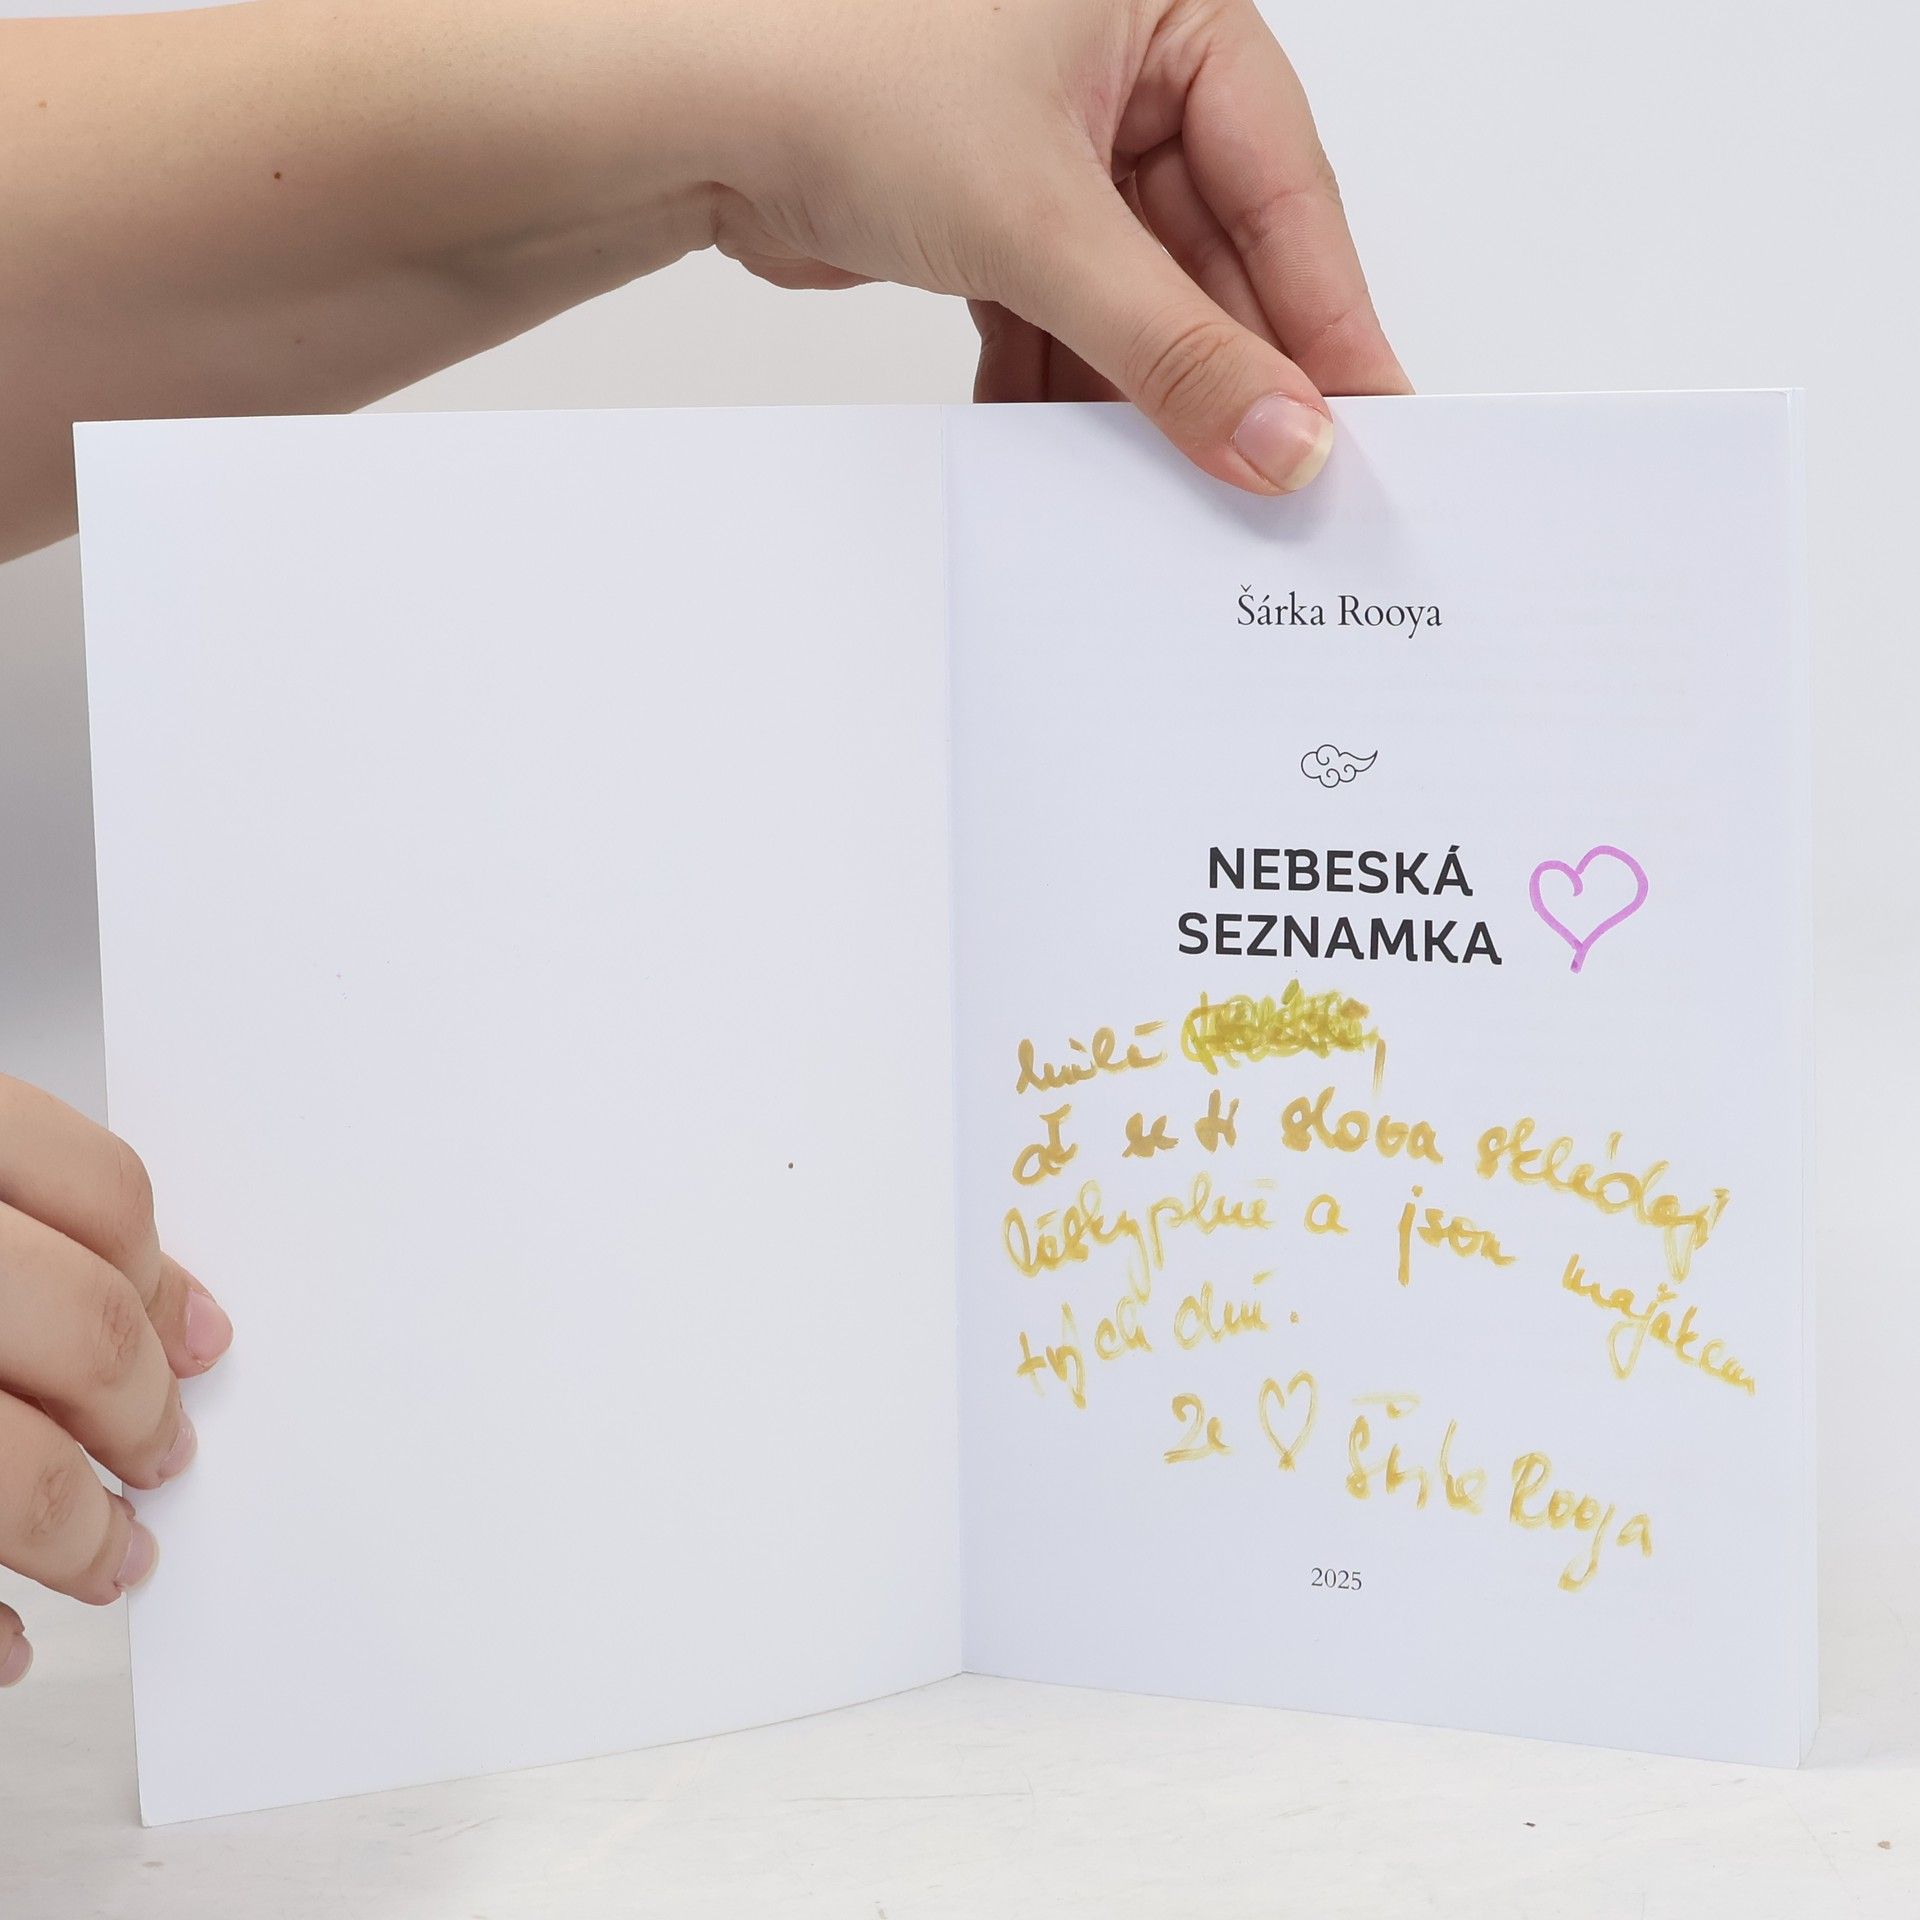 Šárka Rooya
NEBESKÁ
SEZNAMKA
milé
ať se ti slova skládají
láskyplně a jsou majákem
tvých dní.
Ze ♡ Šárka Rooya
2025